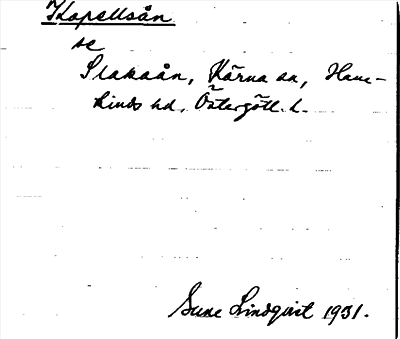 Kapellsån
se
Slakaån, Kärna sn, Hane-
kinds hd, Östergötl. l.
Sune Lindqvist 1931.